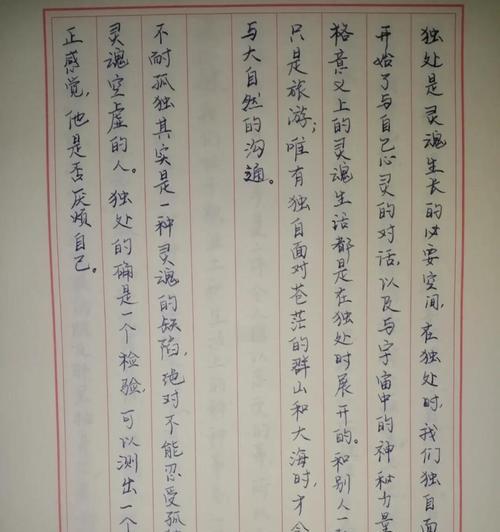 独处是灵魂生长的必要空间,在独处时,我们独自面
开始了与自己心灵的对话,以及与宇宙中的神和力量
格意义上的灵魂生活都是在独处时展开的。和别人一
只是旅游;唯有独自面对苍茫的群山和大海时,才会
与大自然的沟通。
不耐孤独其实是一种灵魂的缺陷,绝对不能忍受孤独
灵魂空虚的人。独处的确是一个检验,可以测出一个
正感觉,他是否厌烦自己。